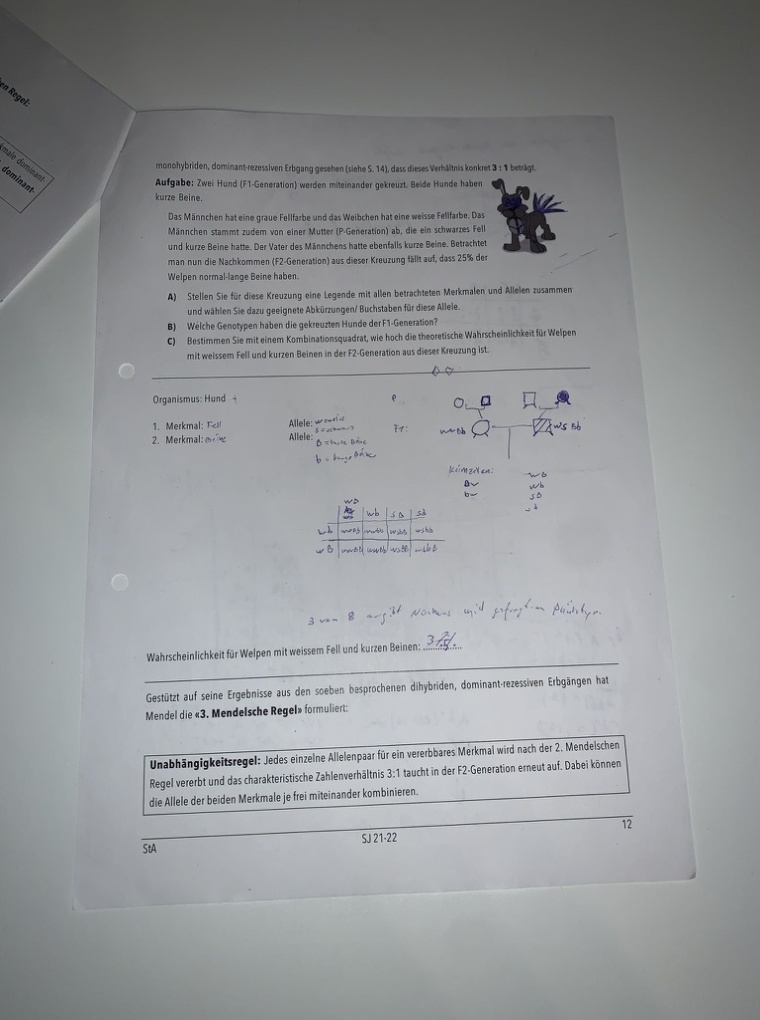 en Regel:
male dominant-
dominant-
monohybriden, dominant-rezessiven Erbgang gesehen (siehe S. 14), dass dieses Verhältnis konkret 3 : 1 beträgt.
Aufgabe: Zwei Hund (F1-Generation) werden miteinander gekreuzt. Beide Hunde haben
kurze Beine.
Das Männchen hat eine graue Fellfarbe und das Weibchen hat eine weisse Fellfarbe. Das
Männchen stammt zudem von einer Mutter (P-Generation) ab, die ein schwarzes Fell
und kurze Beine hatte. Der Vater des Männchens hatte ebenfalls kurze Beine. Betrachtet
man nun die Nachkommen (F2-Generation) aus dieser Kreuzung fällt auf, dass 25% der
Welpen normal-lange Beine haben.
A) Stellen Sie für diese Kreuzung eine Legende mit allen betrachteten Merkmalen und Allelen zusammen
und wählen Sie dazu geeignete Abkürzungen/ Buchstaben für diese Allele.
B) Welche Genotypen haben die gekreuzten Hunde der F1-Generation?
C) Bestimmen Sie mit einem Kombinationsquadrat, wie hoch die theoretische Wahrscheinlichkeit für Welpen
mit weissem Fell und kurzen Beinen in der F2-Generation aus dieser Kreuzung ist.
Organismus: Hund
P
1. Merkmal: Fell Allele:
2. Merkmal: Beine Allele: B = kurze Beine
b = lange Beine
F1: wwBb wS Bb
Keimzellen:
wB
wb
SB
wB
wb SB Sb
3 von 8 ergibt
Wahrscheinlichkeit für Welpen mit weissem Fell und kurzen Beinen:
Gestützt auf seine Ergebnisse aus den soeben besprochenen dihybriden, dominant-rezessiven Erbgängen hat
Mendel die «3. Mendelsche Regel» formuliert:
Unabhängigkeitsregel: Jedes einzelne Allelenpaar für ein vererbbares Merkmal wird nach der 2. Mendelschen
Regel vererbt und das charakteristische Zahlenverhältnis 3:1 taucht in der F2-Generation erneut auf. Dabei können
die Allele der beiden Merkmale je frei miteinander kombinieren.
StA SJ 21-22 12